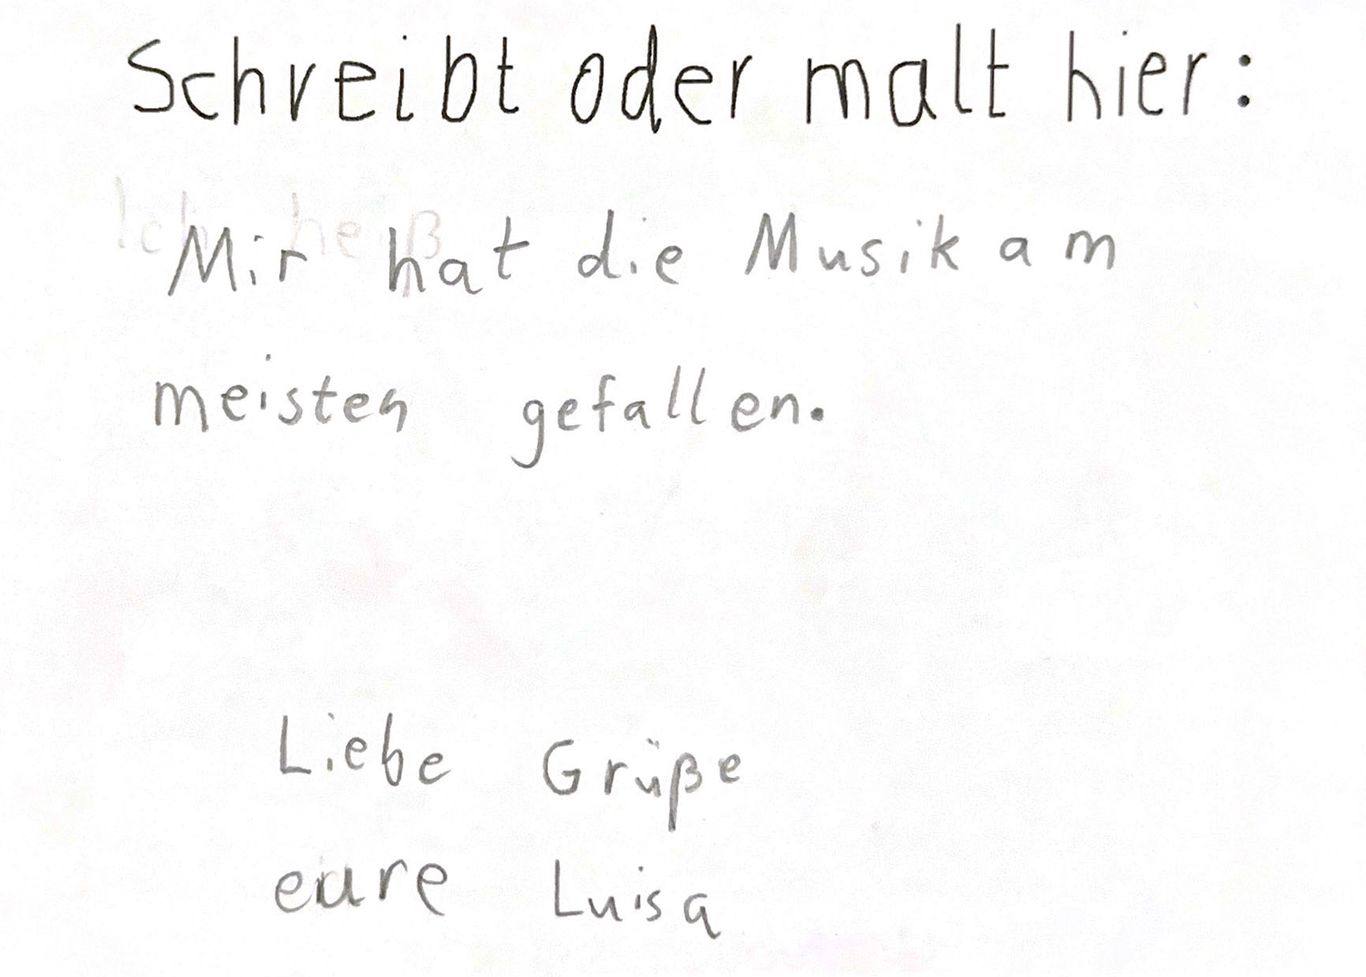 Schreibt oder malt hier:
Mir hat die Musik am
meisten gefallen.
Liebe Grüße
eure Luisa